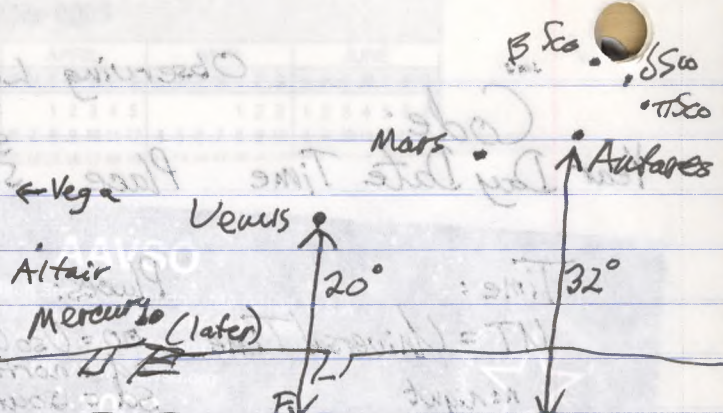 β Sco
δ Sco
π Sco
Mars
Antares
← Vega
Venus
Altair
20°
32°
Mercury
(later)